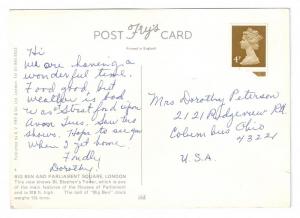 POST CARD
Fry's
Printed in England
Hi
We are having a
wonderful time.
Food good, but
weather is bad
was at Stratford upon
Avon Tues. Saw two
shows. Hope to see you
when I get home.
Fondly
Dorothy.
Mrs Dorothy Peterson
2121 Ridgeview Rd.
Columbus Ohio
43221
U.S.A.
BIG BEN AND PARLIAMENT SQUARE, LONDON
This view shows St. Stephen's Tower, which is one
of the main features of the Houses of Parliament
and is 316 ft. high. The bell of "Big Ben" clock
weighs 13½ tons.